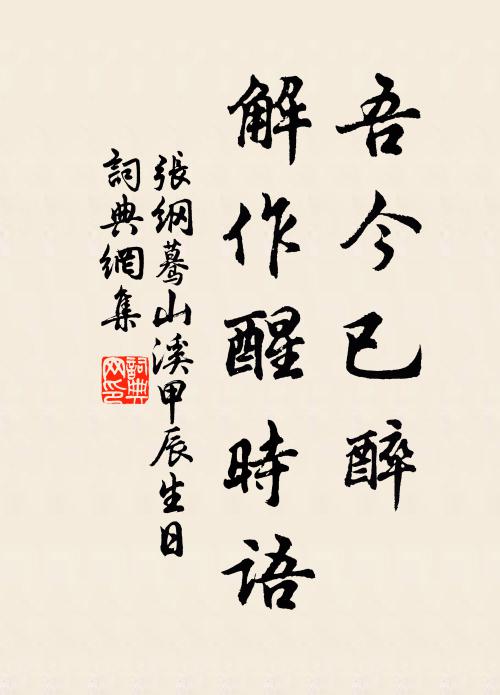 吾今已醉
解作醒時語
張綱蓦山溪甲辰生日
詞典網集
詞典
网印